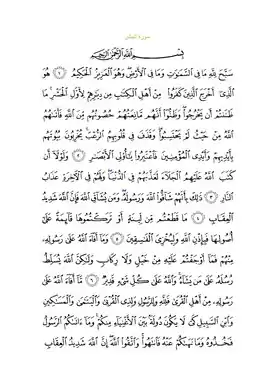 سورة الحشر
بِسْمِ اللَّهِ الرَّحْمَٰنِ الرَّحِيمِ
سَبَّحَ لِلَّهِ مَا فِي السَّمَٰوَٰتِ وَمَا فِي الْأَرْضِ وَهُوَ الْعَزِيزُ الْحَكِيمُ ١ هُوَ
الَّذِي أَخْرَجَ الَّذِينَ كَفَرُوا مِنْ أَهْلِ الْكِتَٰبِ مِن دِيَٰرِهِمْ لِأَوَّلِ الْحَشْرِ مَا
ظَنَنتُمْ أَن يَخْرُجُوا وَظَنُّوا أَنَّهُم مَّانِعَتُهُمْ حُصُونُهُم مِّنَ اللَّهِ فَأَتَىٰهُمُ
اللَّهُ مِنْ حَيْثُ لَمْ يَحْتَسِبُوا وَقَذَفَ فِي قُلُوبِهِمُ الرُّعْبَ يُخْرِبُونَ بُيُوتَهُم
بِأَيْدِيهِمْ وَأَيْدِي الْمُؤْمِنِينَ فَاعْتَبِرُوا يَٰأُولِي الْأَبْصَٰرِ ٢ وَلَوْلَا أَن
كَتَبَ اللَّهُ عَلَيْهِمُ الْجَلَاءَ لَعَذَّبَهُمْ فِي الدُّنْيَا وَلَهُمْ فِي الْءَاخِرَةِ عَذَابُ
النَّارِ ٣ ذَٰلِكَ بِأَنَّهُمْ شَاقُّوا اللَّهَ وَرَسُولَهُ وَمَن يُشَاقِّ اللَّهَ فَإِنَّ اللَّهَ شَدِيدُ
الْعِقَابِ ٤ مَا قَطَعْتُم مِّن لِّينَةٍ أَوْ تَرَكْتُمُوهَا قَائِمَةً عَلَىٰ
أُصُولِهَا فَبِإِذْنِ اللَّهِ وَلِيُخْزِيَ الْفَٰسِقِينَ ٥ وَمَا أَفَاءَ اللَّهُ عَلَىٰ رَسُولِهِ
مِنْهُمْ فَمَا أَوْجَفْتُمْ عَلَيْهِ مِنْ خَيْلٍ وَلَا رِكَابٍ وَلَٰكِنَّ اللَّهَ يُسَلِّطُ
رُسُلَهُ عَلَىٰ مَن يَشَاءُ وَاللَّهُ عَلَىٰ كُلِّ شَيْءٍ قَدِيرٌ ٦ مَّا أَفَاءَ اللَّهُ عَلَىٰ
رَسُولِهِ مِنْ أَهْلِ الْقُرَىٰ فَلِلَّهِ وَلِلرَّسُولِ وَلِذِي الْقُرْبَىٰ وَالْيَتَٰمَىٰ وَالْمَسَٰكِينِ
وَابْنِ السَّبِيلِ كَيْ لَا يَكُونَ دُولَةً بَيْنَ الْأَغْنِيَاءِ مِنكُمْ وَمَا ءَاتَىٰكُمُ الرَّسُولُ
فَخُذُوهُ وَمَا نَهَىٰكُمْ عَنْهُ فَانتَهُوا وَاتَّقُوا اللَّهَ إِنَّ اللَّهَ شَدِيدُ الْعِقَابِ